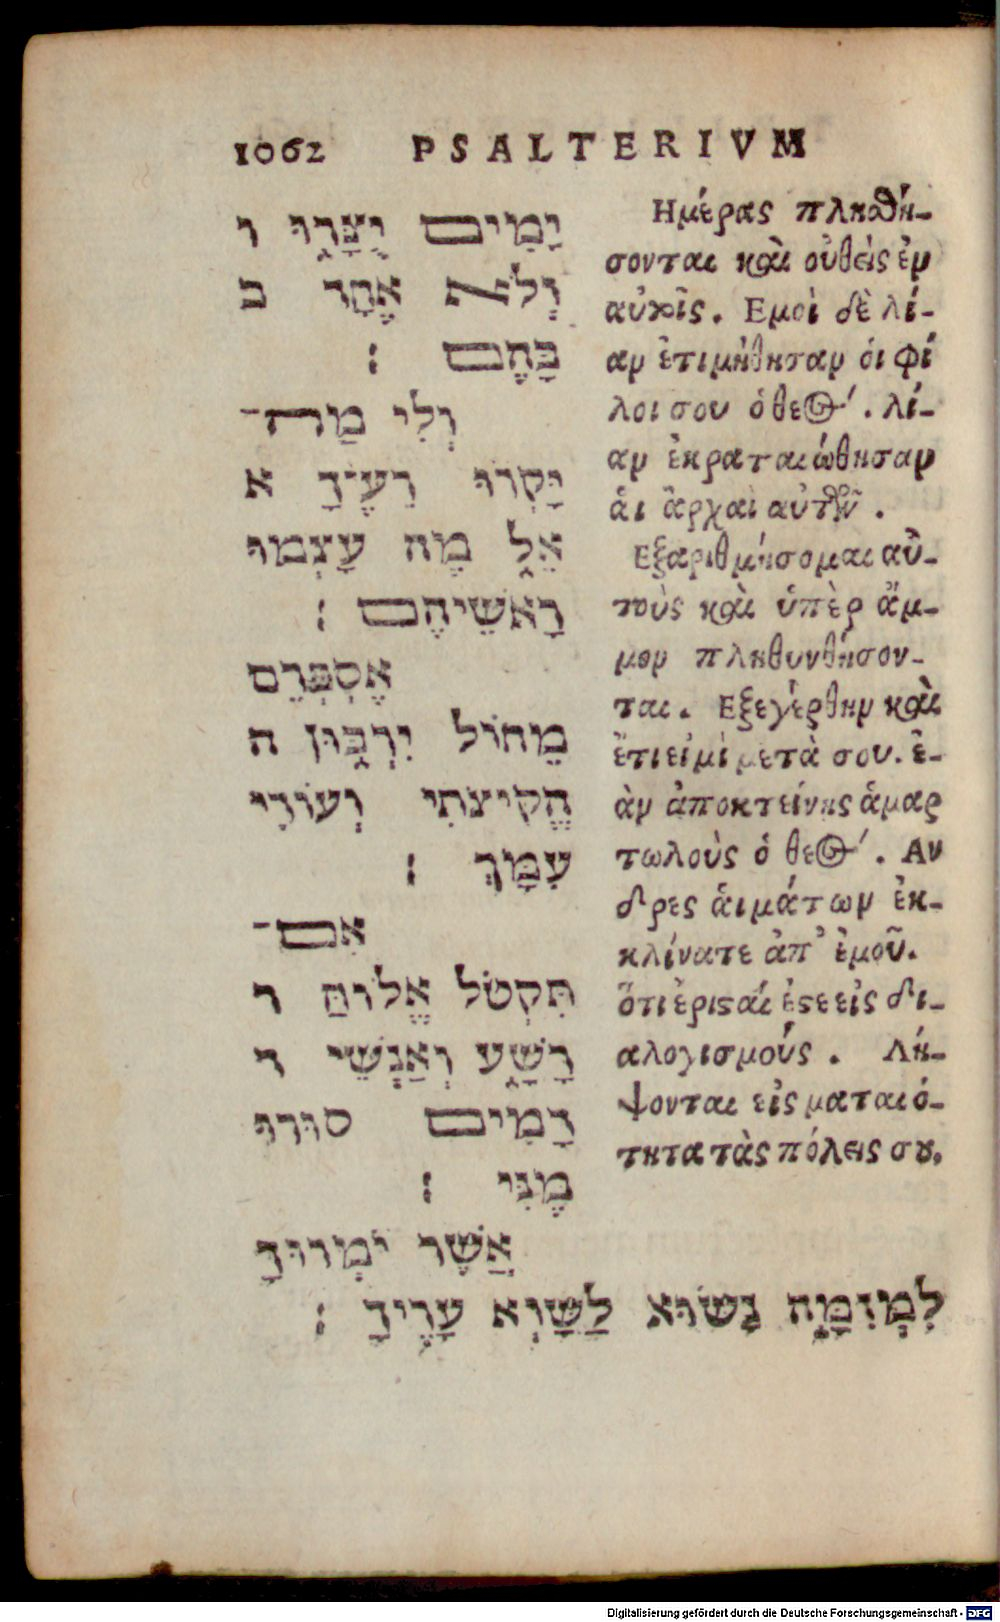 1062 PSALTERIVM
יָמִים יֻצָּרוּ ו
וְלֹא אֶחָד ב
בָּהֶם ׃
וְלִי מַה־
יָּקְרוּ רֵעֶיךָ א
אֵל מֶה עָצְמוּ
רָאשֵׁיהֶם ׃
אֶסְפְּרֵם
מֵחוֹל יִרְבּוּן ה
הֱקִיצֹתִי וְעוֹדִי
עִמָּךְ ׃
אִם־
תִּקְטֹל אֱלוֹהַּ ר
רָשָׁע וְאַנְשֵׁי ד
דָמִים סוּרוּ
מֶנִּי ׃
אֲשֶׁר יֹמְרוּךָ
לִמְזִמָּה נָשׂוּא לַשָּׁוְא עָרֶיךָ ׃
Ημέρας πλαθή-
σονται καὶ οὐθεὶς ἐν
αὐτοῖς. Εμοὶ δὲ λί-
αν ἐτιμήθησαν ὁι φί
λοι σου ὁ θεός. λί-
αν ἐκραταιώθησαν
ἁι ἀρχαὶ αὐτῶν.
Εξαριθμήσομαι αὐ-
τοὺς καὶ ὑπὲρ ἄμ-
μον πληθυνθήσον-
ται. Εξεγέρθην καὶ
ἔτι εἰμὶ μετὰ σου. ἐ-
ὰν ἀποκτείνης ἁμαρ
τωλοὺς ὁ θεός. Αν
δρες ἁιμάτων ἐκ-
κλίνατε ἀπ' ἐμοῦ.
ὅτι ἐρισαί ἐστε εἰς δι-
αλογισμούς. Λή-
ψονται εἰς ματαιό-
τητα τὰς πόλεις σου.
Digitalisierung gefördert durch die Deutsche Forschungsgemeinschaft - DFG